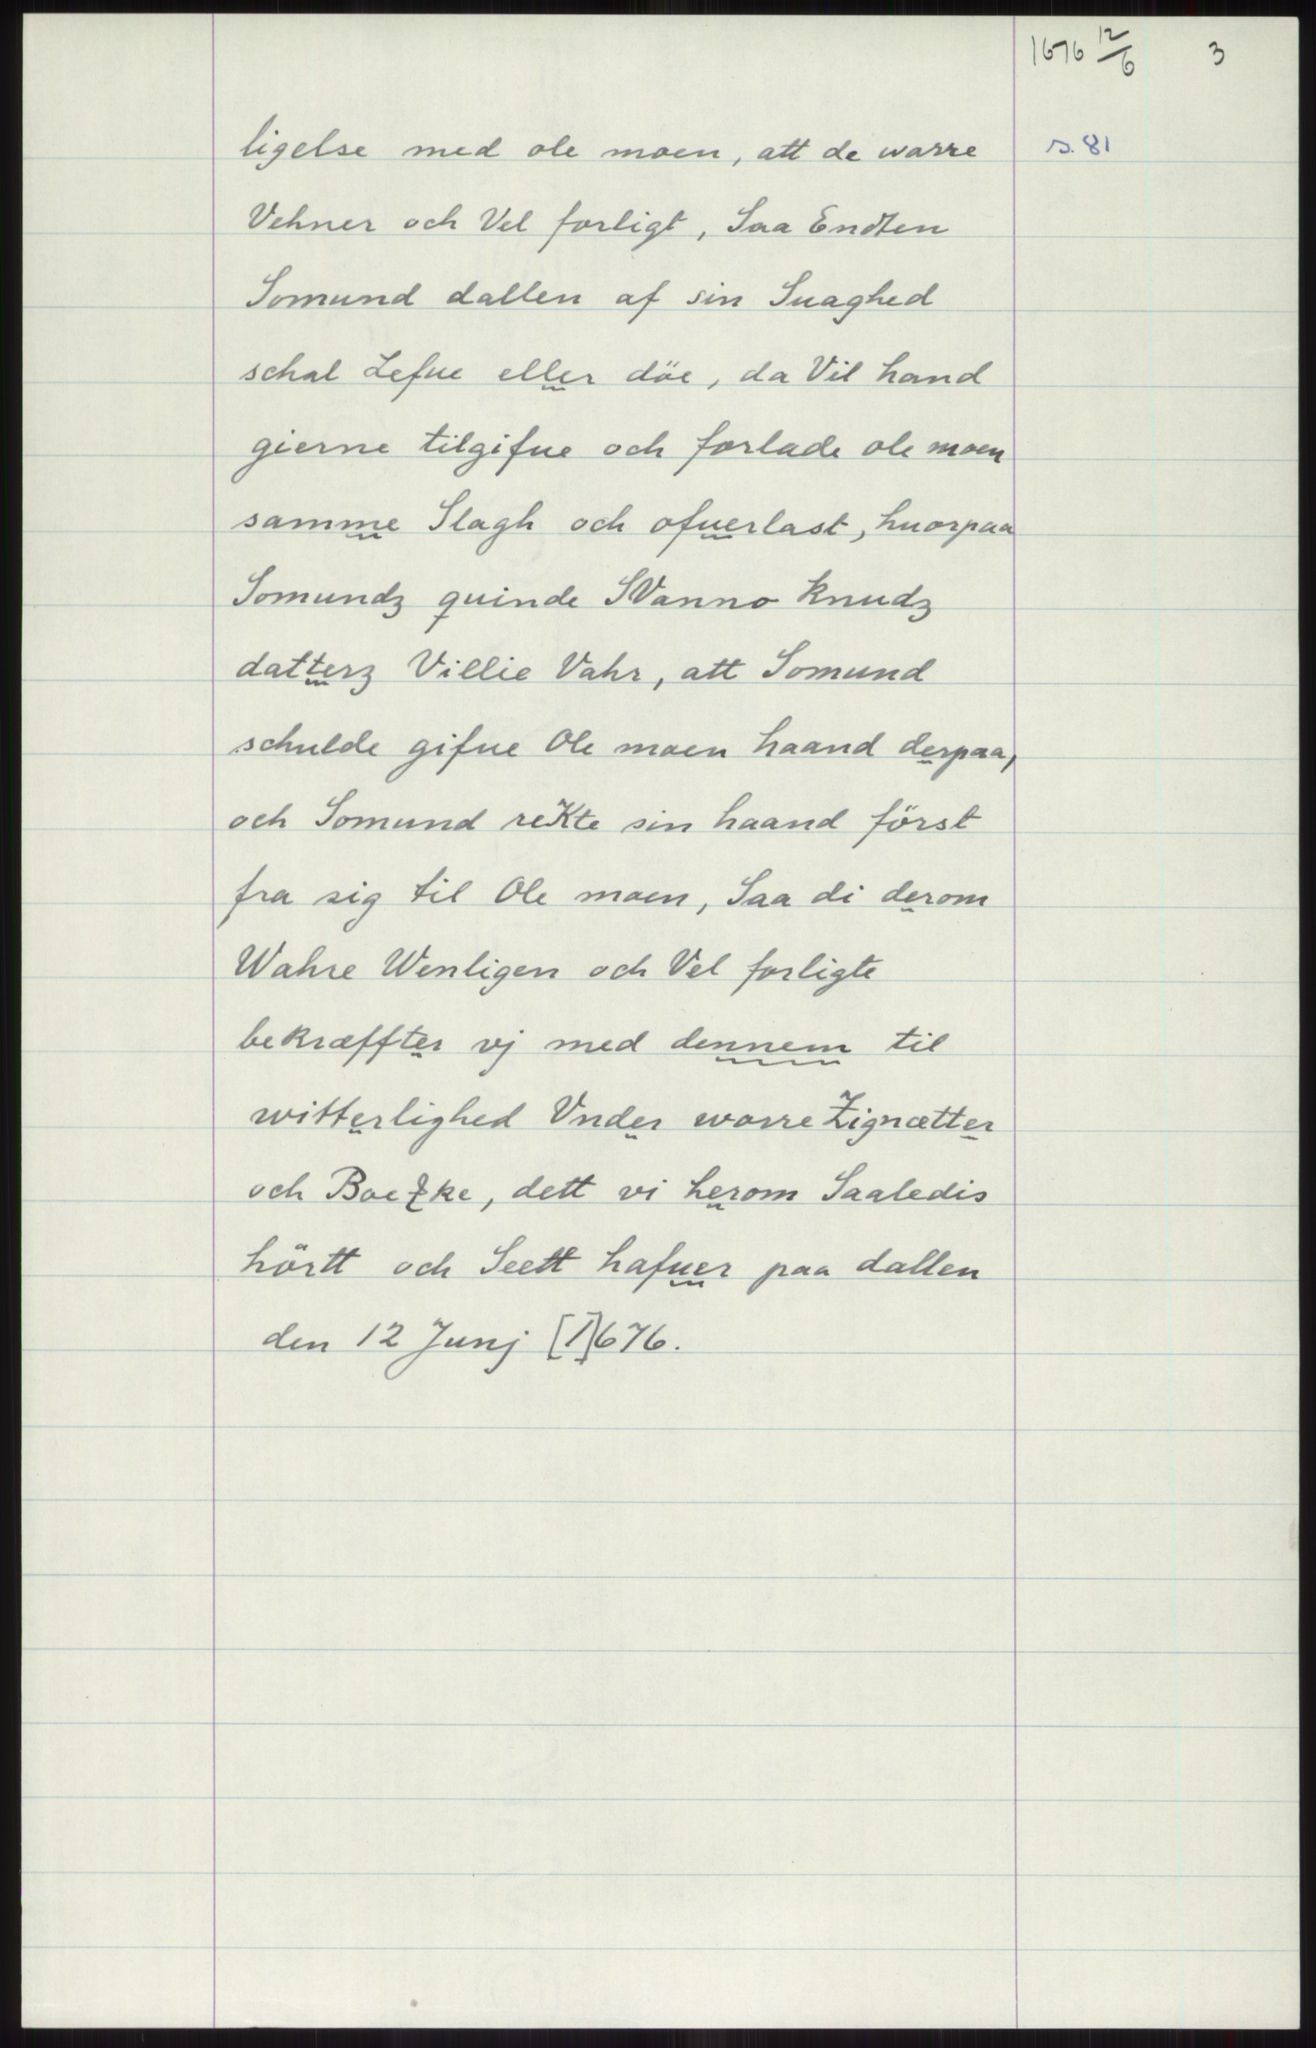 1676 12/6 3
ligelse med ole moen, att de warre s. 81
Vehner och Vel forligt, Saa Endten
Somund dallen af sin Suaghed
schal Lefue eller döe, da Vil hand
gierne tilgifue och forlade ole moen
samme Slagh och ofuerlast, huorpaa
Somundz quinde SVanno Knudz
datterz Villie Vahr, att Somund
schulde gifue Ole moen haand derpaa,
och Somund reKte sin haand först
fra sig til Ole moen, Saa di derom
Wahre Wenligen och Vel forligte
bekræffter vj med dennem til
witterlighed Vnder worre Zignætter
och Boezke, dett vi herom Saaledis
hörtt och Seett hafuer paa dallen
den 12 Junj [1]676.